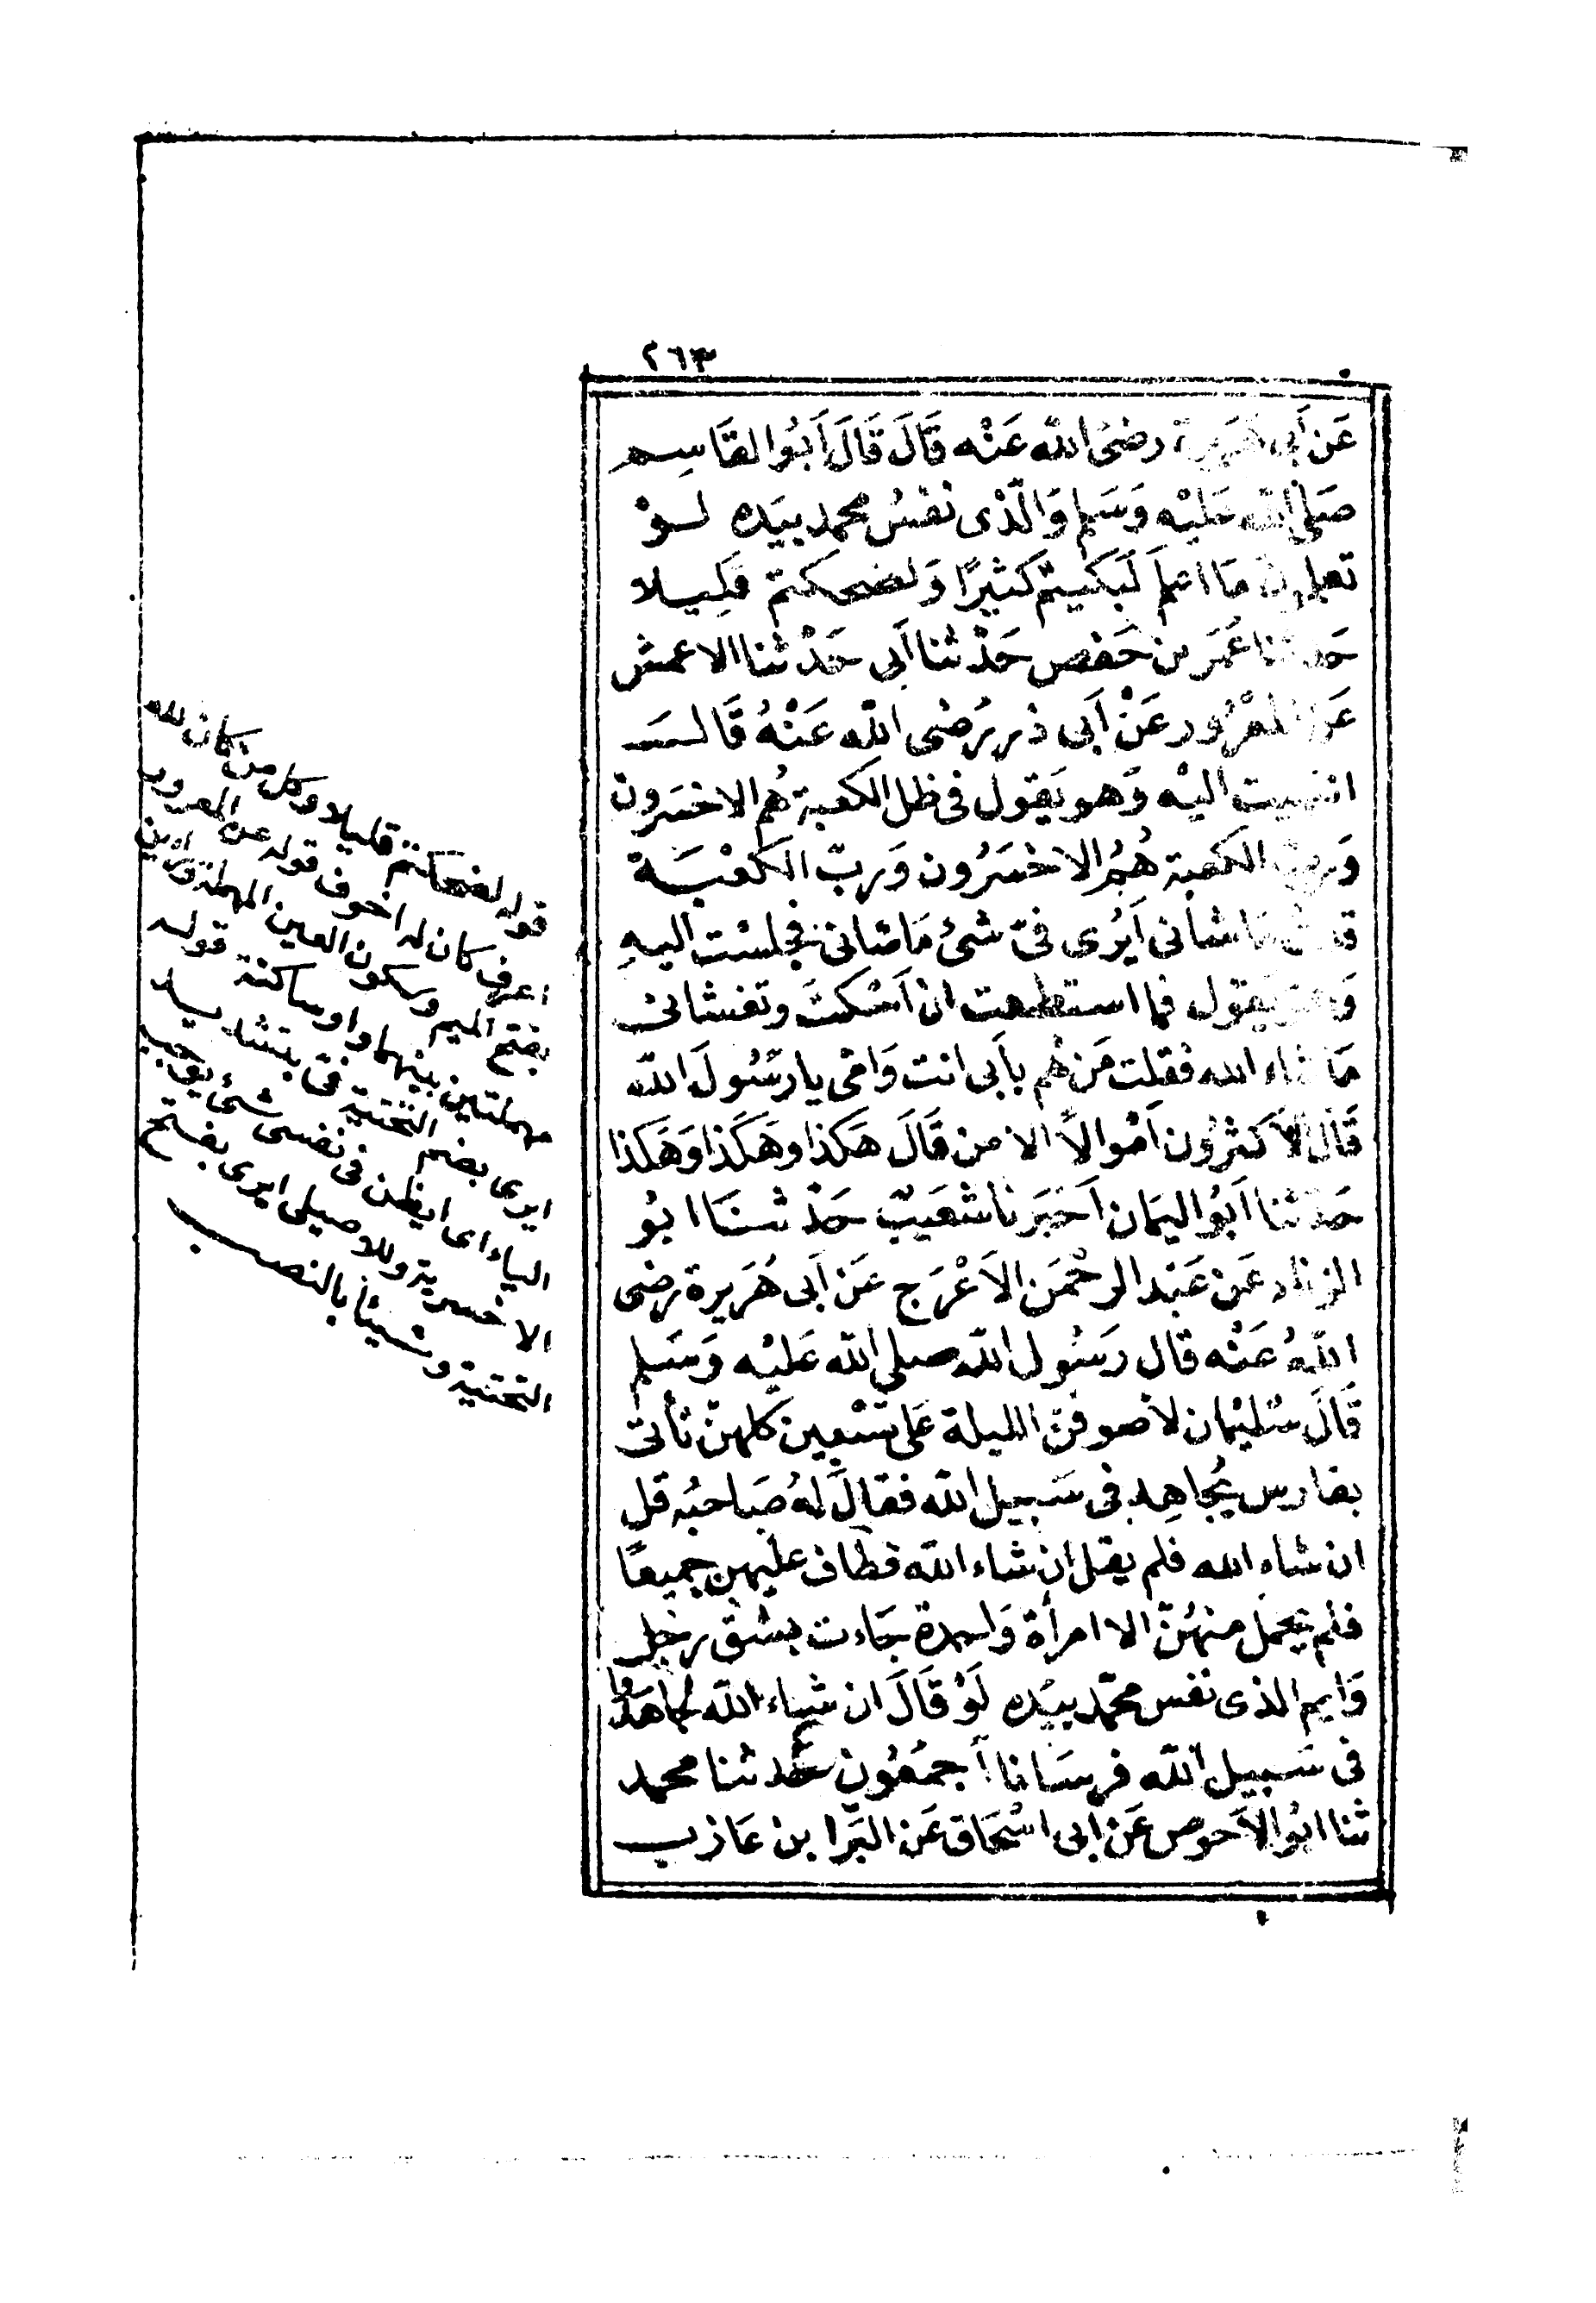 ٢٦٣
عَن أَبى هريرة رضىُ اللّه عَنْه قَالَ قَالَ أَبُوالقَاسِم
صَلى الله عَليْه وَسَلم وَالّذى نفسُ محمد بيَده لــوْ
تعلمون مَا اعلم لَبَكيتمْ كَثيرًا وَلضحكتم قَلِيـلا
حَدثنا عُمَر بن حَفص حَدثنا أَبى حَدثنا الاعمش
عَن المعْرُور عَنْ أَبى ذر رَضى اللّه عَنْهُ قَالــَ
انتهيت اليْه وَهو يَقول فى ظل الكَعبة هُم الاخسَرون
وَرب الكعبة هُمُ الاخسَرُون وَربّ الكَعْبَـة
قلت مَا شأنى أَيُرى فىّ شئ مَاشانى فجلسْت اليهِ
وَهو يَقول فما استطعت ان اَسْكتَ وتغشانى
مَا شاء الله فقلت مَن هُم بأَبى انت وَامّى يا رَسُولَ اللّه
قَال الاَكثرُون اَمْوالاً الا من قَالَ هَكذا وهَكَذا وَهَكذا
حَدثنا اَبُو اليَمان اَخبَرنا شعَيبٌ حَدثـنَا ابُو
الزناد عَن عَبْد الرحْمَن الاَعْرَج عَن اَبى هُرَيرة رضى
اللّهُ عَنْه قال رَسُول اللّه صلى اللّه عَليْه وَسَلم
قَالَ سُليْمان لأطوفنّ الليلة عَلى تسْعين كلهنّ تأتى
بفارس يُجاهِد فى سَبيل اللّه فقالَ لهُ صَاحبُه قل
ان شاء الله فلم يقل ان شاء اللّه فطاف عليهن جميعًا
فلم يحمل منهُنّ الا امرأة وَاحدة جَاءت بشق رَجل
وَايم الذى نفس محمّد بيَده لَوْ قَالَ ان شاء اللّه لجاهَدُوا
فى سَبيل اللّه فرسَانا أجمَعُون حَدثنا محمد
ثنا ابُو الاَحوص عَن ابى اسْحَاق عَن البَرا بن عَازب
قوله لضحكتم قليلا وكل من كان لله
اعرف كان له اخوف قوله عن المعرور
بفتح الميم وسكون العين المهملة وراءين
مهملتين بينهما واو ساكنة قولــه
ايرى بضم التحتية فىّ بتشديـد
الياء اى ايظن فى نفسى شئ يوجب
الاخسرية وللاصيلى ايرى بفتح
التحتية وشيئا بالنصب